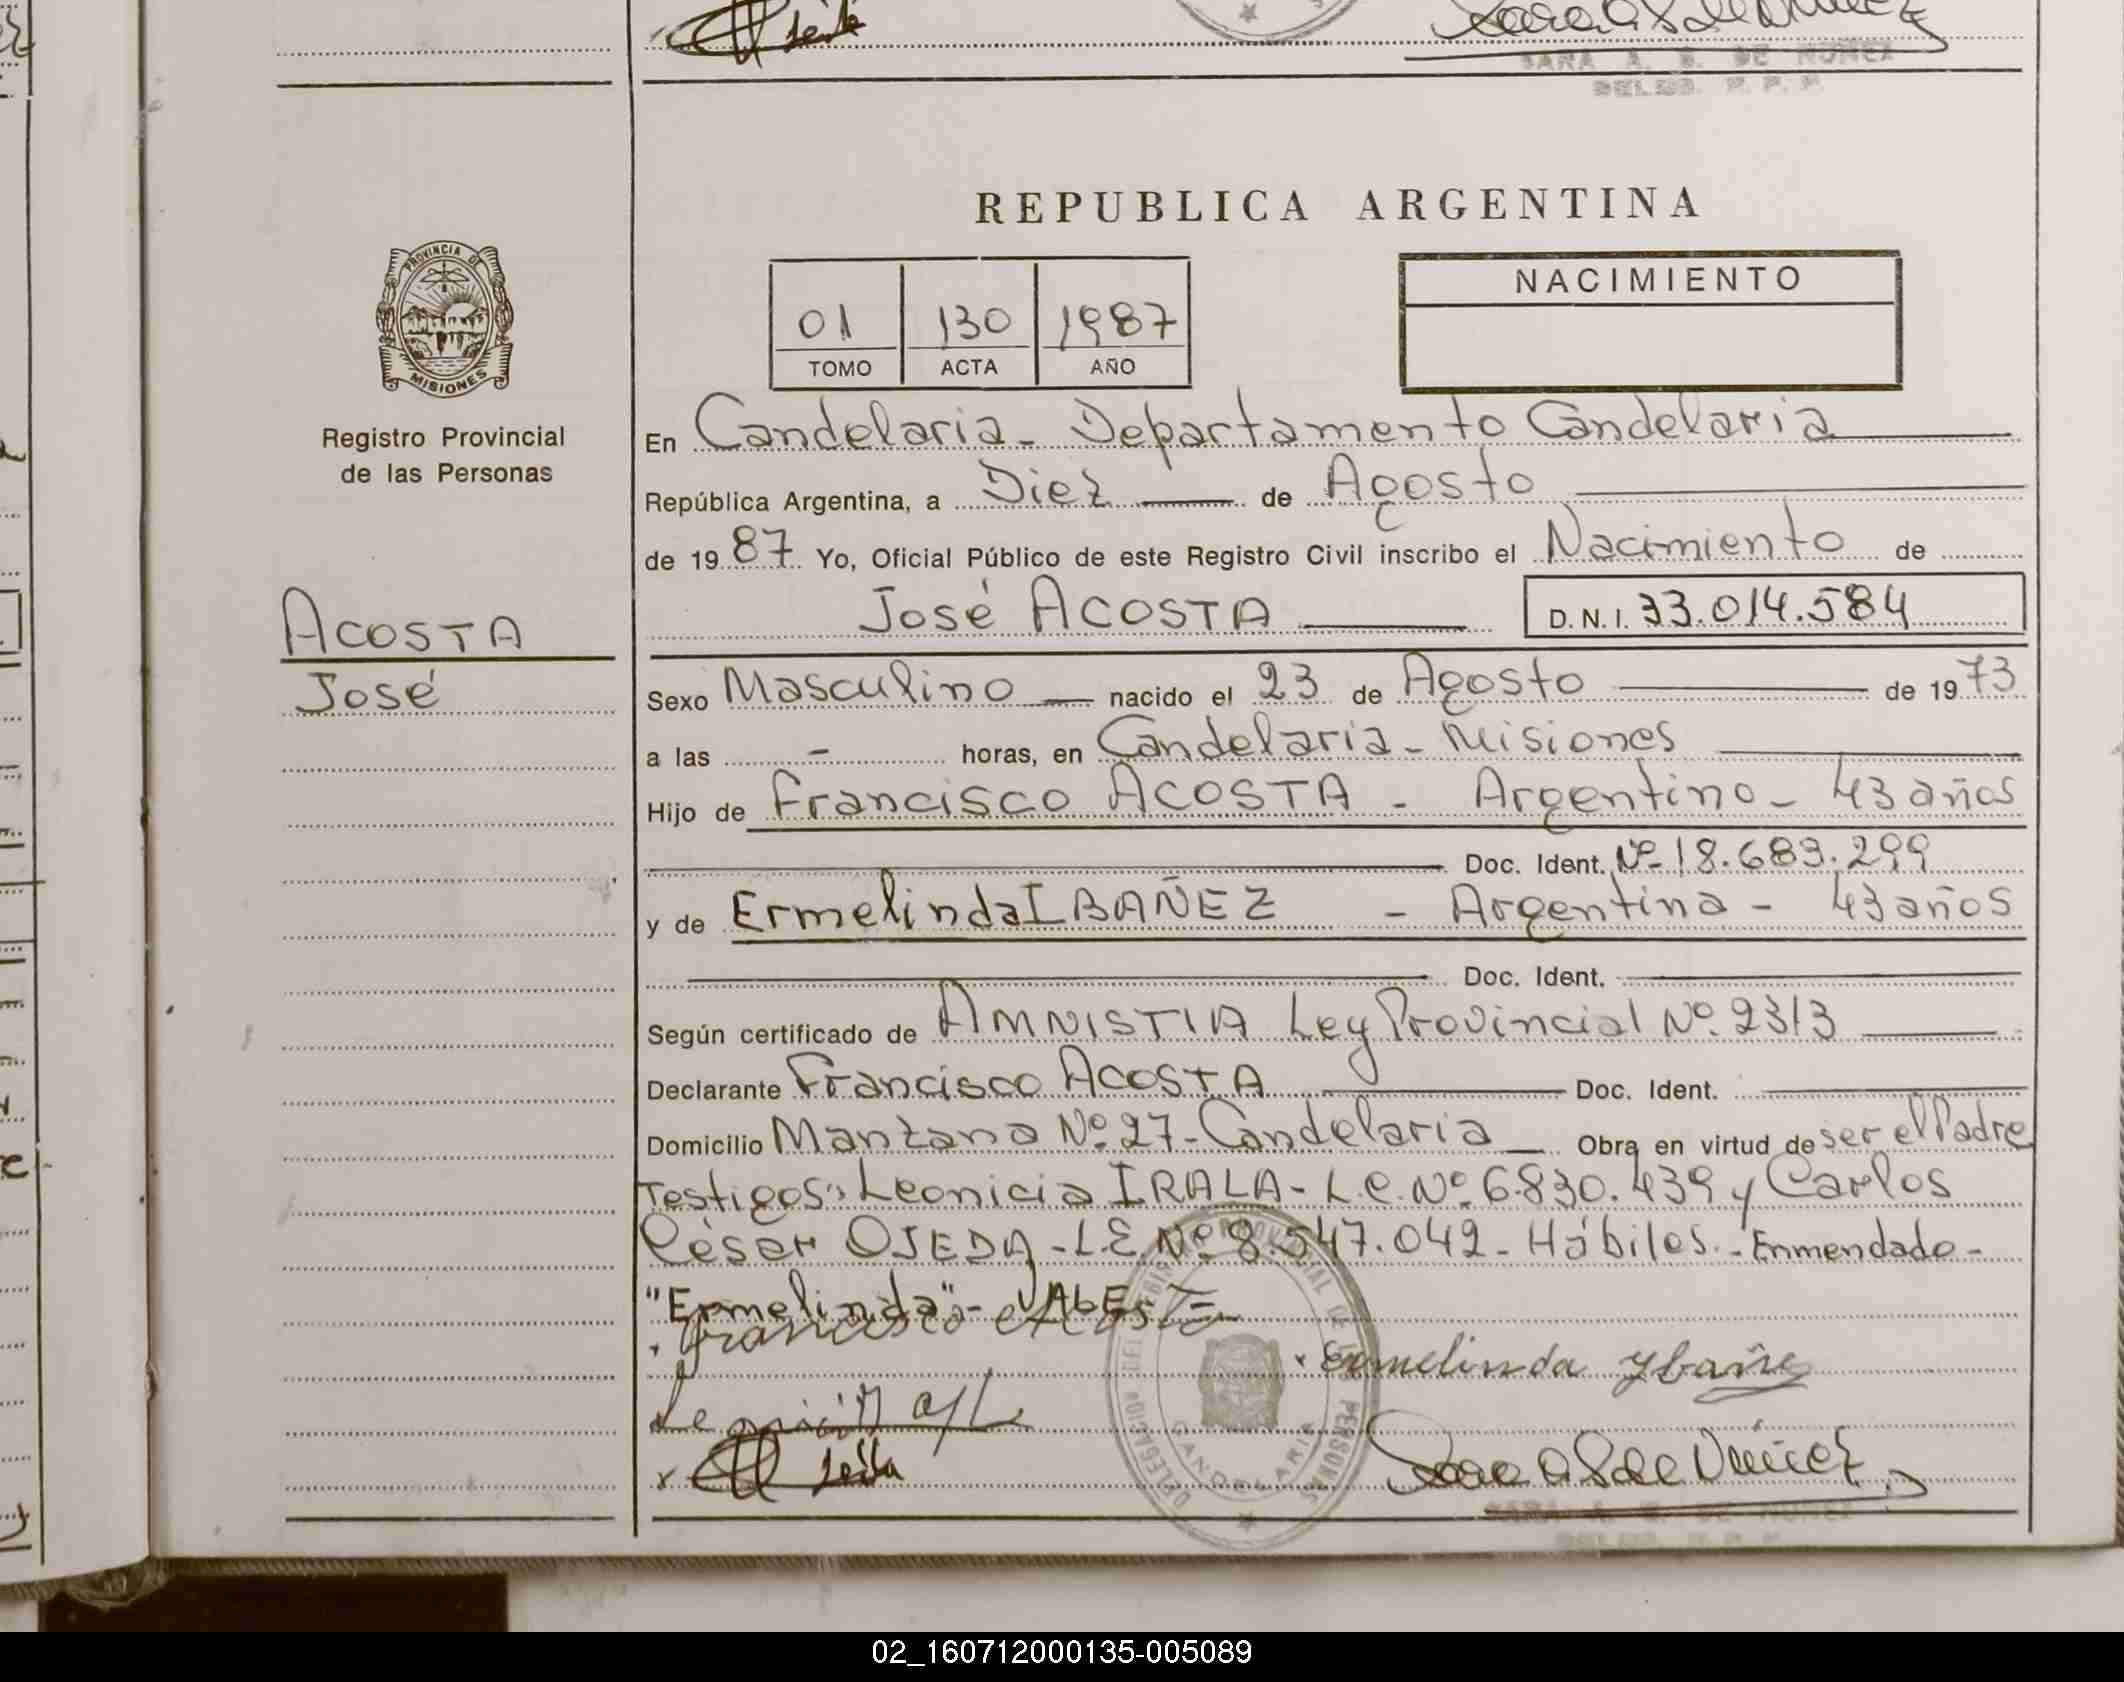 SARA A. S. DE NUÑEZ
DELEG. R. P. P.
REPUBLICA ARGENTINA
PROVINCIA DE
MISIONES
Registro Provincial
de las Personas
ACOSTA
José
01 130 1987
TOMO ACTA AÑO
NACIMIENTO
En Candelaria - Departamento Candelaria
República Argentina, a Diez de Agosto
de 1987 Yo, Oficial Público de este Registro Civil inscribo el Nacimiento de
José ACOSTA D.N.I. 33.014.584
Sexo Masculino nacido el 23 de Agosto de 1973
a las - horas, en Candelaria - Misiones
Hijo de Francisco ACOSTA - Argentino - 43 años
Doc. Ident. Nº 18.689.299
y de Ermelinda IBAÑEZ - Argentina - 43 años
Doc. Ident.
Según certificado de AMNISTIA Ley Provincial Nº. 2313
Declarante Francisco ACOSTA Doc. Ident.
Domicilio Manzana Nº 27 - Candelaria Obra en virtud de ser el Padre
Testigos: Leonicia IRALA - L.C. Nº 6.830.439 y Carlos
César OJEDA - L.E. Nº 8.547.042 - Hábiles. - Enmendado -
"Ermelinda" - VALE
Francisco Acosta
Ermelinda Ybañe
Sara A S de Núñez
DELEGACION DEL REGISTRO PROVINCIAL DE LAS PERSONAS
CANDELARIA
SARA A. S. DE NUÑEZ
DELEG. R. P. P.
02_160712000135-005089